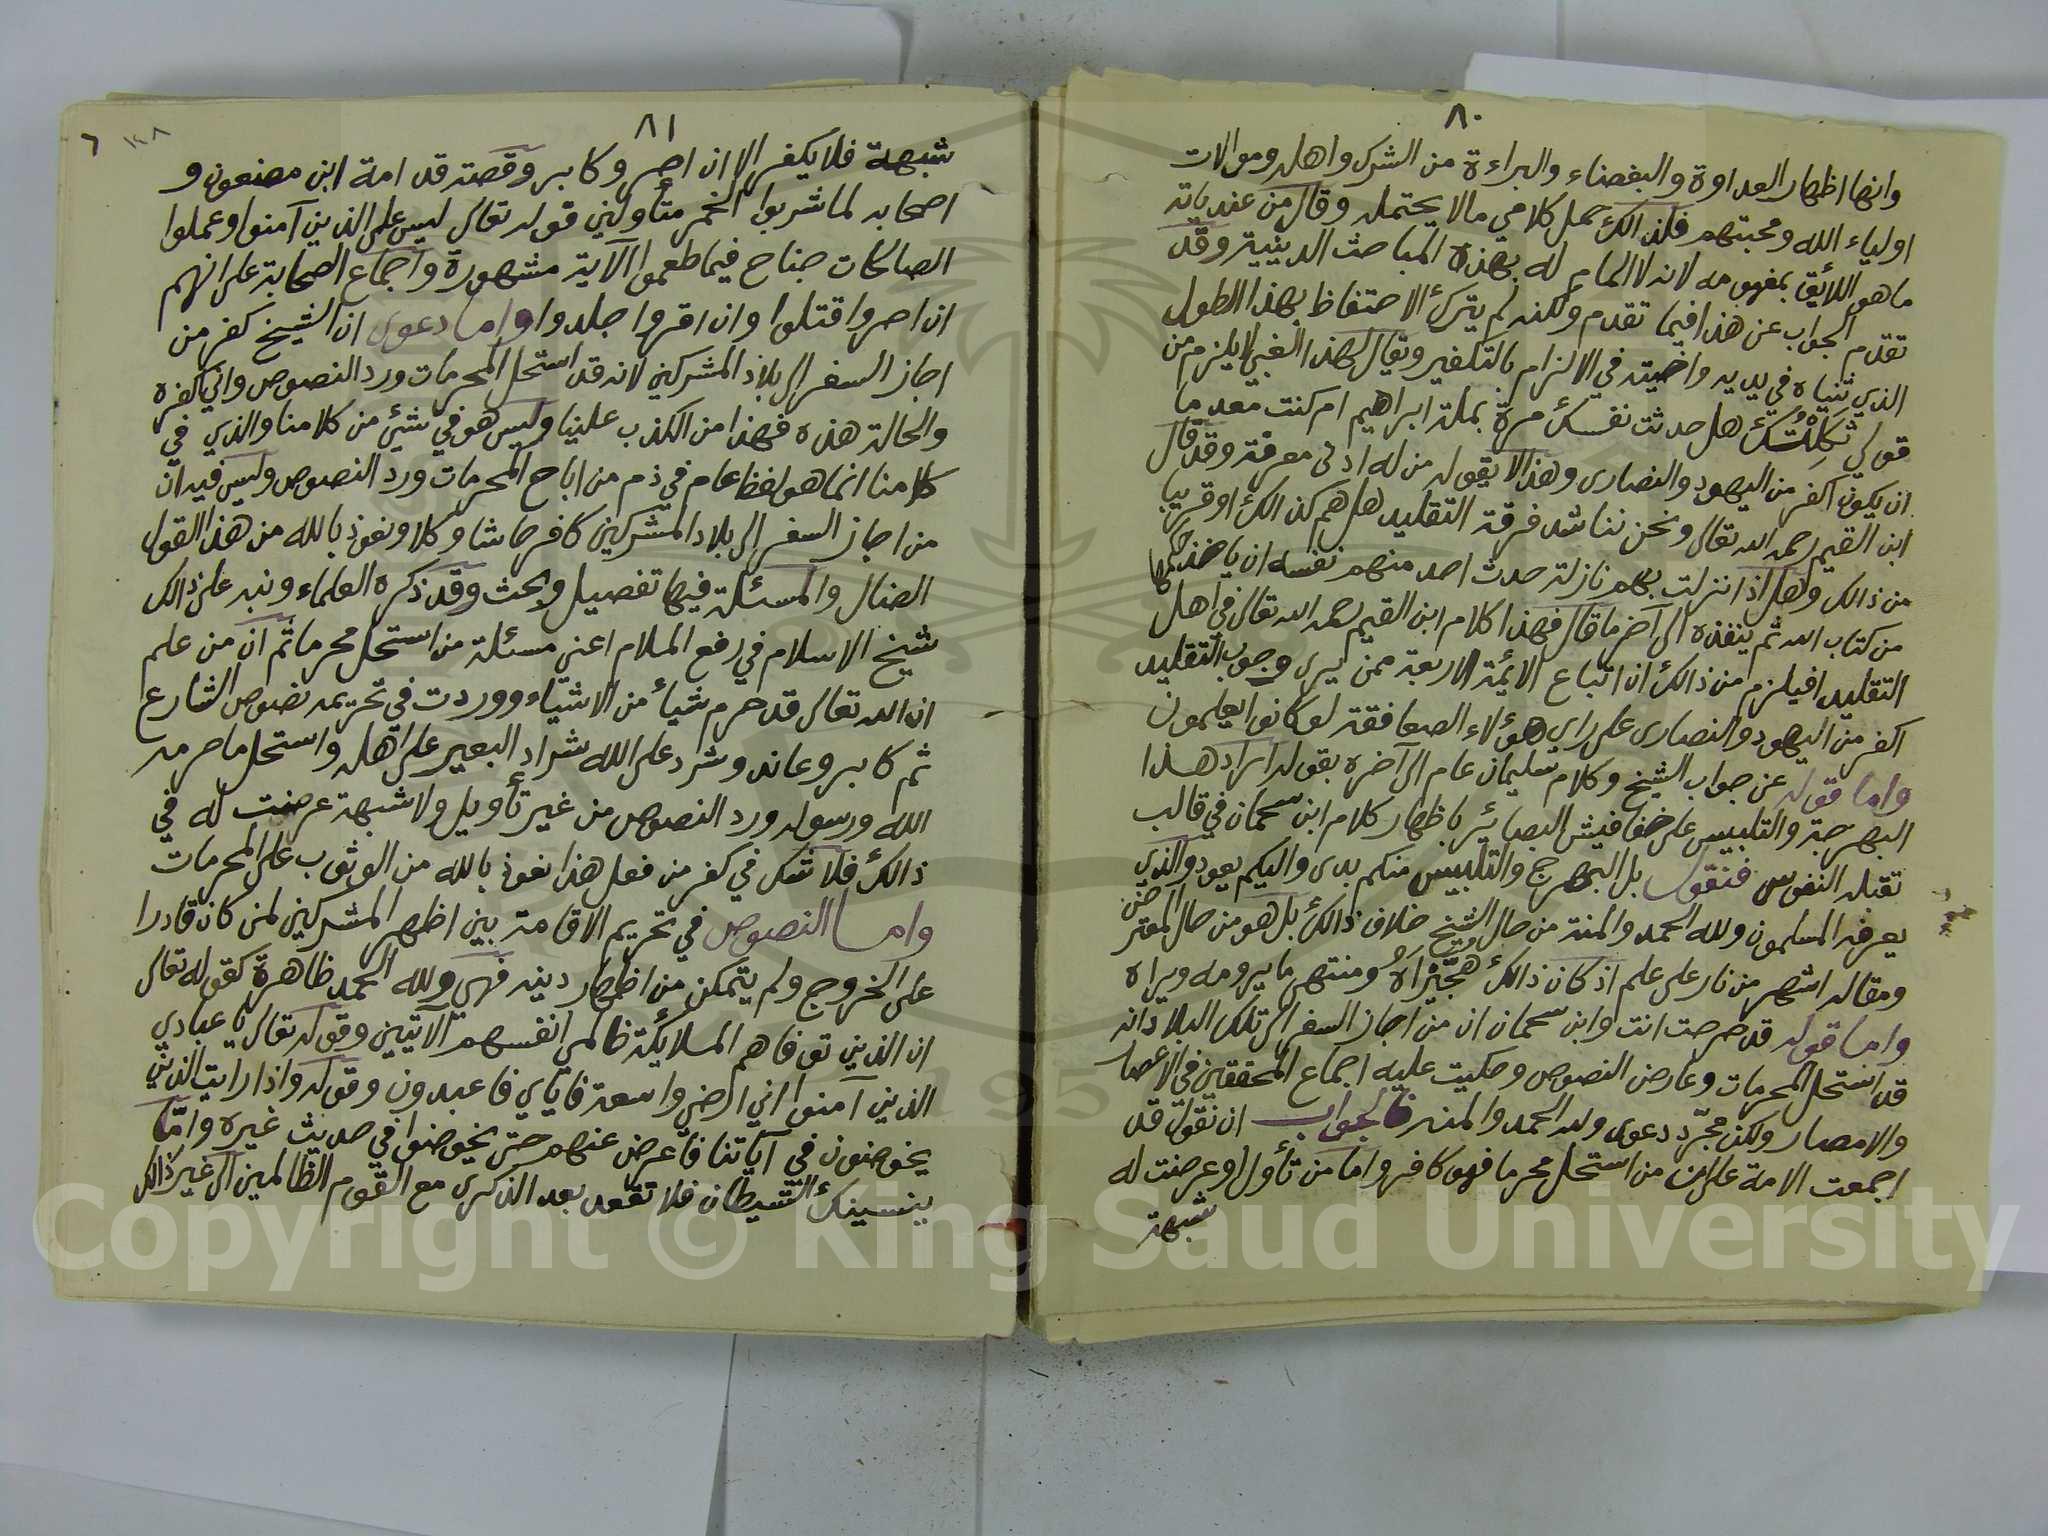 ٨٠
وانها اظهار العداوة والبغضاء والبراءة من الشرك واهله وموالات
اولياء الله ومحبتهم فلذالك حمل كلامي مالا يحتمله وقال من عندياته
ما هو اللائق بمفهومه لانه لا المام له بهذه المباحث الدينية وقد
تقدم الجواب عن هذا فيما تقدم ولكنه لم يترك الاحتفاظ بهذا الطول
الذي ثنياه في يديه واخيته في الالزام بالتكفير ويقال لهذا الغبي لا يلزم من
قولي ثكلتك هل حدثت نفسك مرة بملة ابراهيم ام كنت معدما
ان يكون اكفر من اليهود والنصارى وهذا لا يقوله من له ادنى معرفة وقد قال
ابن القيم رحمه الله تعالى ونحن نناشد فرقة التقليد هل هم كذالك او قريبا
من ذالك وهل اذا نزلت بهم نازلة حدث احد منهم نفسه ان ياخذ حكمها
من كتاب الله ثم ينفذه الى آخر ما قال فهذا كلام ابن القيم رحمه الله تعالى في اهل
التقليد افيلزم من ذالك ان اتباع الائمة الاربعة ممن يرى وجوب التقليد
اكفر من اليهود والنصارى على راي هؤلاء الصعافقة لو كانوا يعلمون
واما قوله عن جواب الشيخ وكلام سليمان عام الى آخره بقوله ايراد هذا
البهرجة والتلبيس على خفافيش البصائر باظهار كلام ابن سحمان في قالب
تقبله النفوس فنقول بل البهرج والتلبيس منكم بدى واليكم يعود والذي
يعرفه المسلمون ولله الحمد والمنة من حال الشيخ خلاف ذالك بل هو من حال المعترض
ومقاله اشهر من نار على علم اذ كان ذالك هجيراه ومنتهى ما يرومه ويراه
واما قوله قد صرحت انت وابن سحمان ان من اجاز السفر الى تلك البلاد انه
قد استحل المحرمات وعارض النصوص وحكيت عليه اجماع المحققين في الاعصار
والامصار ولكن مجرد دعوى ولله الحمد والمنه فالجواب ان نقول قد
اجمعت الامة على ان من استحل محرما فهو كافر واما من تأول او عرضت له
شبهة
٨١
٦
شبهة فلا يكفر الا ان اصر وكابر وقصة قدامة ابن مضعون و
اصحابه لما شربوا الخمر متأولين قوله تعالى ليس على الذين آمنوا وعملوا
الصالحات جناح فيما طعموا الآية مشهورة واجماع الصحابة على انهم
ان اصروا قتلوا وان اقروا جلدوا واما دعوى ان الشيخ كفر من
اجاز السفر الى بلاد المشركين لانه قد استحل المحرمات ورد النصوص واني اكفره
والحالة هذه فهذا من الكذب علينا وليس هو في شيئ من كلامنا والذي في
كلامنا انما هو لفظ عام في ذم من اباح المحرمات ورد النصوص وليس فيه ان
من اجاز السفر الى بلاد المشركين كافر حاشا وكلا ونعوذ بالله من هذا القول
الضال والمسئلة فيها تفصيل وبحث وقد ذكره العلماء ونبه على ذالك
شيخ الاسلام في رفع الملام اعني مسئلة من استحل محرما ثم ان من علم
ان الله تعالى قد حرم شيأ من الاشياء ووردت في تحريمه نصوص الشارع
ثم كابر وعاند وشرد على الله شراد البعير على اهله واستحل ما حرمه
الله ورسوله ورد النصوص من غير تأويل ولا شبهة عرضت له في
ذالك فلا شك في كفر من فعل هذا نعوذ بالله من الوثوب على المحرمات
واما النصوص في تحريم الاقامة بين اظهر المشركين لمن كان قادرا
على الخروج ولم يتمكن من اظهار دينه فهي ولله الحمد ظاهرة كقوله تعالى
ان الذين توفاهم الملائكة ظالمي انفسهم الآيتين وقوله تعالى يا عبادي
الذين آمنوا اني ارضي واسعة فاياي فاعبدون وقوله واذا رايت الذين
يخوضون في آياتنا فاعرض عنهم حتى يخوضوا في حديث غيره واما
ينسينك الشيطان فلا تقعد بعد الذكرى مع القوم الظالمين الى غير ذالك
Copyright © King Saud University